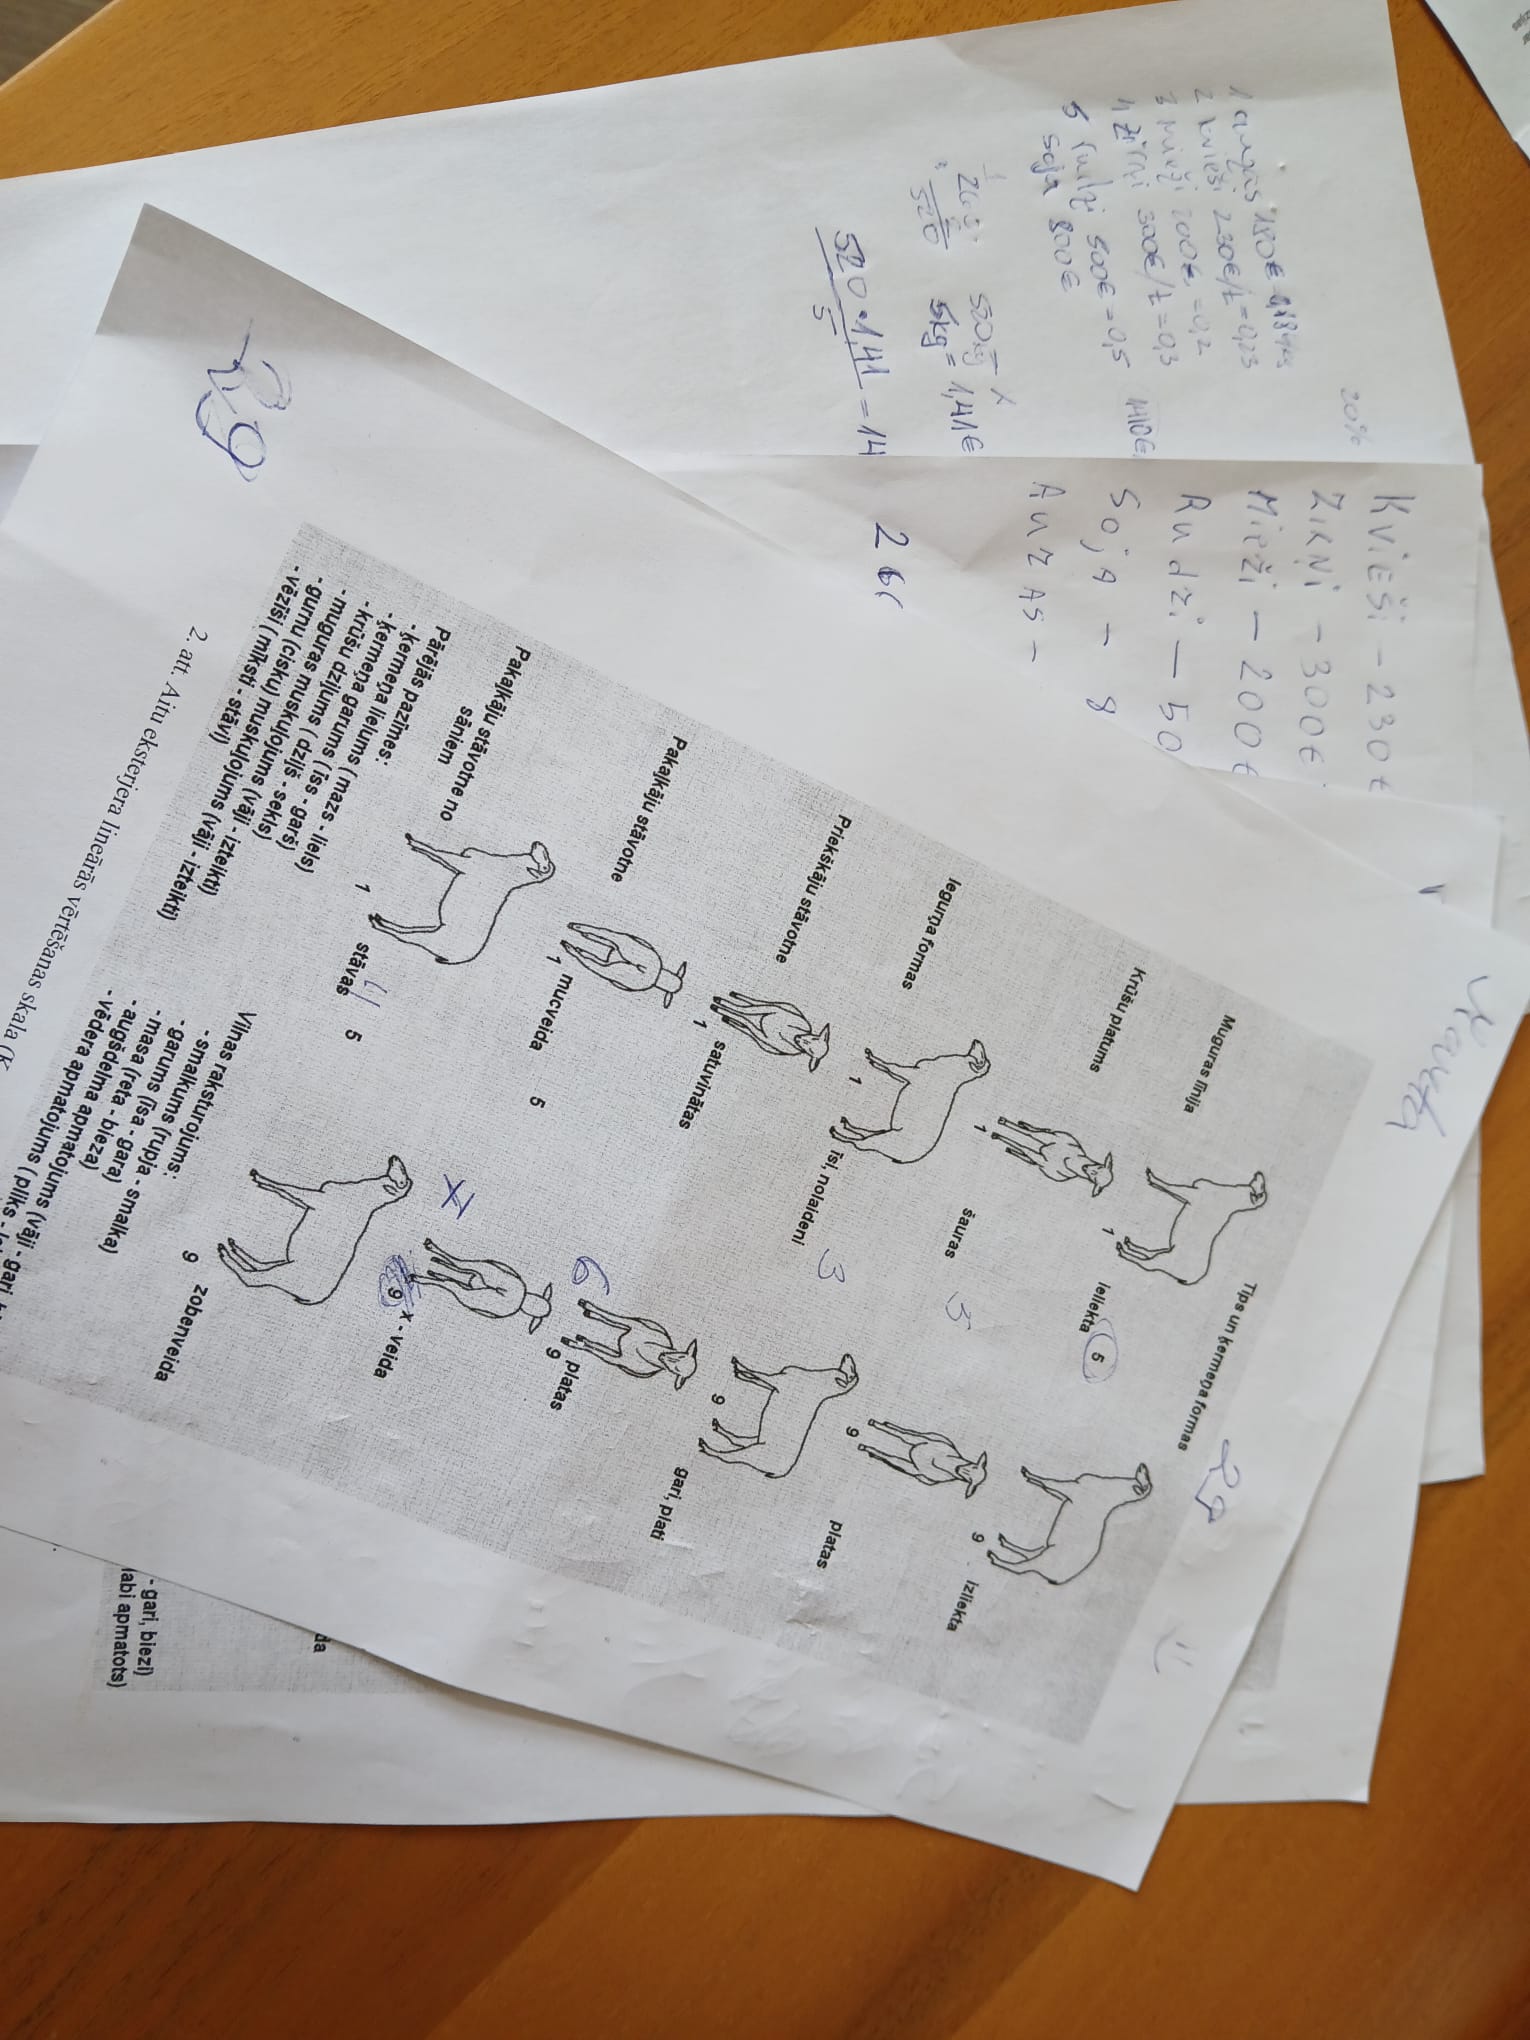 20%
1 auzas 180€
2 kvieši 230€/t=0,23
3 mieži 200€ =0,2
4 žirņi 300€/t=0,3
5 rudzi 500€=0,5
soja 800€
260
520
520kg x
5kg = 1,41€
520 · 1,41 = 14
5
KVIEŠI - 230€
ZIRŅI - 300€
Mieži - 200€
Rudzi - 50
SojA - 8
AuzAS -
Tips un ķermeņa formas
Muguras līnija
1 ieliekta 5 9 izliekta
Krūšu platums
1 šauras 5 9 platas
Iegurņa formas
1 īsi, nolaideni 3 9 gari, plati
Priekškāju stāvotne
1 satuvinātas 6 9 platas
Pakaļkāju stāvotne
1 mucveida 5 9 x - veida
Pakaļkāju stāvotne no
sāniem
1 stāvas 4 5 9 zobenveida
Pārējās pazīmes:
- ķermeņa lielums (mazs - liels)
- ķermeņa garums (īss - garš)
- krūšu dziļums ( dziļš - sekls)
- muguras muskuļojums (vāji - izteikti)
- gurnu (cisku) muskuļojums (vāji - izteikti)
- vēzīši ( mīksti - stāvi)
Vilnas raksturojums:
- smalkums (rupja - smalka)
- garums (īsa - gara)
- masa (reta - bieza)
- augšdelma apmatojums (vāji - gari,
- vēdera apmatojums (pliks -
2. att. Aitu eksterjera lineārās vērtēšanas skala (K
da
- gari, biezi)
labi apmatots)